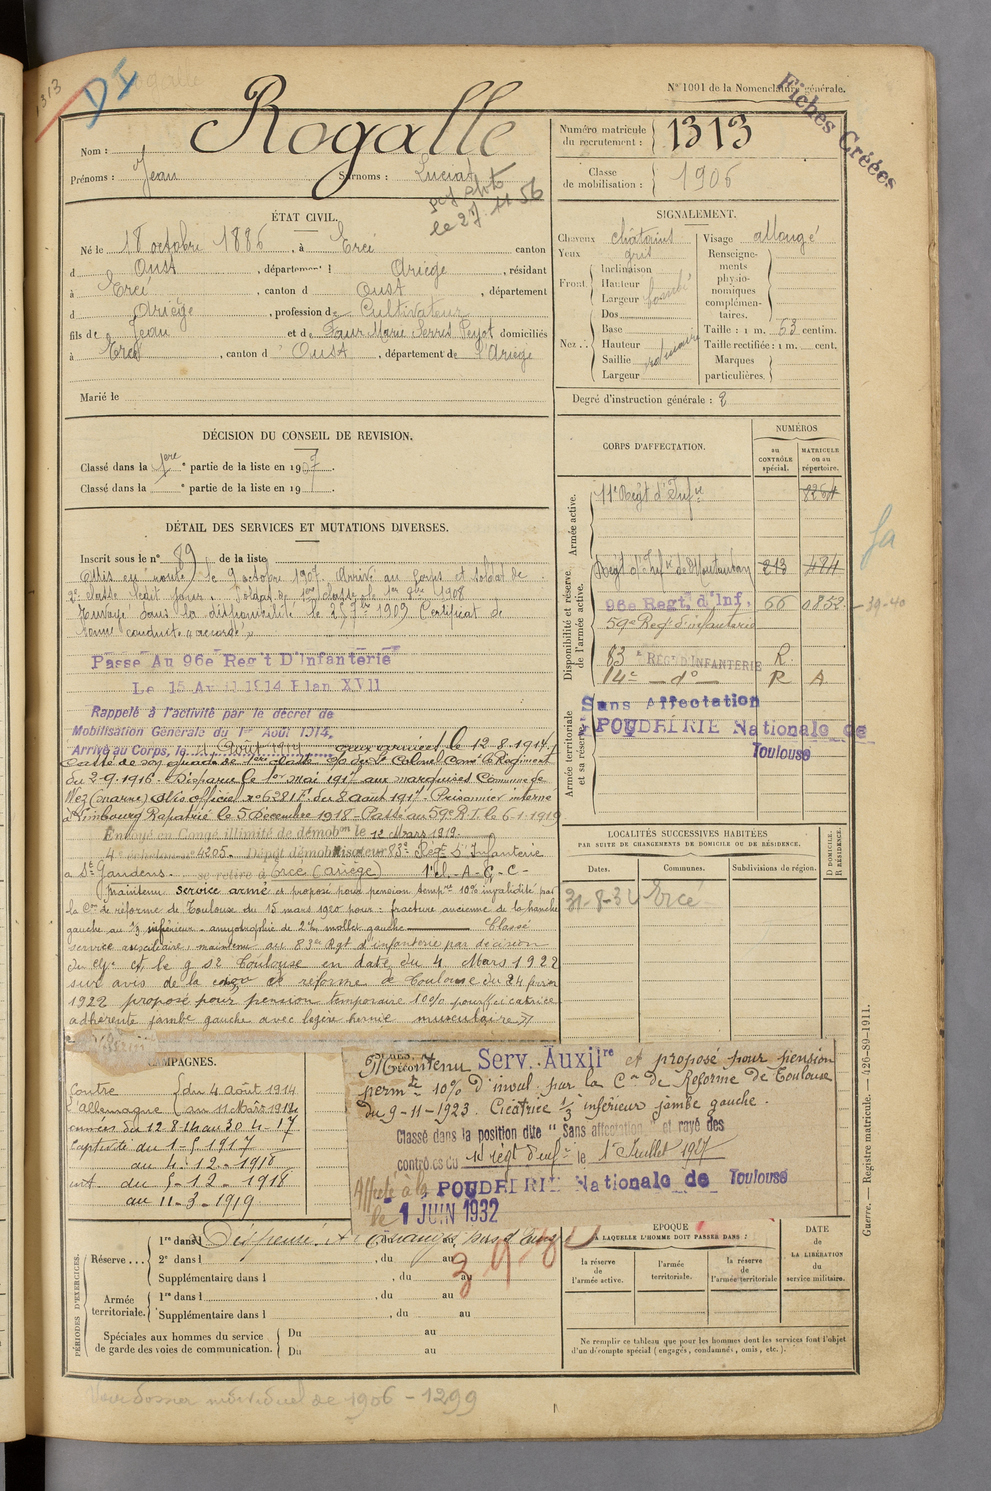 1313
N° 1001 de la Nomenclature générale.
Fiches Créées
Nom : Rogalle
Prénoms : Jean Surnoms :
le 27.11 56
Numéro matricule du recrutement : 1313
Classe de mobilisation : 1906
ÉTAT CIVIL.
Né le 18 octobre 1886, à Ercé canton
d Oust, département d Ariège, résidant
à Ercé, canton d Oust, département
d Ariège, profession de Cultivateur
fils de Jean et de Marie Servat Peyot domiciliés
à Ercé, canton d'Oust, département de l'Ariège
Marié le
SIGNALEMENT.
Cheveux châtains
Yeux gris
Front Inclinaison
Hauteur
Largeur bombé
Nez : Dos
Base
Hauteur ordinaire
Saillie
Largeur
Visage allongé
Renseignements physionomiques complémentaires.
Taille : 1 m. 63 centim.
Taille rectifiée : 1 m. cent.
Marques particulières.
Degré d'instruction générale : 2
DÉCISION DU CONSEIL DE REVISION.
Classé dans la 1ere partie de la liste en 1907.
Classé dans la e partie de la liste en 19 .
DÉTAIL DES SERVICES ET MUTATIONS DIVERSES.
Inscrit sous le n° 89 de la liste
le 9 octobre 1907. Arrivé au corps et soldat de
2e classe ledit jour. Soldat de 1ere classe le 1er 8bre 1908
Envoyé dans la disponibilité le 25 7bre 1909 Certificat de
bonne conduite "accordé"
Passé Au 96e Reg't D'Infanterie
Le 15 Avril 1914 Plan XVII
Rappelé à l'activité par le décret de
Mobilisation Générale du 1er Août 1914,
Arrivé au Corps, le 11 Août 1914 arrivé le 12-8-1914
Passé de 1ere classe du Lt Colonel Comt le Régiment
du 2-9-1916. Disparu le 1er mai 1917 aux marquises Commune de
Nez (marne) avis officiel n° 62817 du 8 aout 1917. Prisonnier interné
à Limbourg Rapatrié le 5 Décembre 1918 - Passé au 59e R.I. le 6-1-1919
Envoyé en Congé illimité de démobon le 12 Mars 1919.
4e échelon n° 4205. Dépôt démobilisateur 83e Regt D'Infanterie
à St Gaudens. se retire à Erce (Ariège) 1° Cl. - A - G - C -
maintenu service armé et proposé pour pension tempre 10% invalidité par
la Con de réforme de Toulouse du 15 mars 1920 pour : fracture ancienne de la hanche
gauche au 1/3 inférieur - amyotrophie de 2 c/m mollet gauche Classé
service auxiliaire, maintenu au 83e Rgt d'infanterie par décision
du Toulouse en date du 4 Mars 1922
sur avis de la con de réforme de Toulouse du 24 fevrier
1922 proposé pour pension temporaire 10% pour : cicatrice
adhérente jambe gauche avec légère hernie musculaire
CORPS D'AFFECTATION.
NUMÉROS
au CONTRÔLE spécial.
MATRICULE ou au répertoire.
Armée active.
11e Régt d'Infrie 8264
Disponibilité et réserve de l'armée active.
Régt d'Infie de Montauban 213 484
96e Regt. d'Inf, 66 0852 - 39-40
59e Regt d'infanterie
83e REGt D'INFANTERIE R
14e - do - R A
Armée territoriale et sa réserve.
Sans Affectation
POUDRERIE Nationale de
Toulouse
LOCALITÉS SUCCESSIVES HABITÉES
PAR SUITE DE CHANGEMENTS DE DOMICILE OU DE RÉSIDENCE.
Dates. Communes. Subdivisions de région. D DOMICILE. R RÉSIDENCE.
31-8-32 Ercé
CAMPAGNES.
Contre l'Allemagne du 4 Août 1914
au 11 Mars 1919
armées du 12 8 14 au 30 4-17
Captivité du 1-5 1917
au 4-12-1918
int. du 5-12-1918
au 11-3-1919
Maintenu Serv. Auxilre et proposé pour pension
permte 10% d'inval. par la Con de Réforme de Toulouse
du 9-11-1923. Cicatrice 1/3 inférieur jambe gauche.
Classé dans la position dite "Sans affectation" et rayé des
contrôles du 14 régt d'infie le 1er Juillet 1927
Affecté à la POUDRERIE Nationale de Toulouse
le 1 JUIN 1932
PÉRIODES D'EXERCICES.
Réserve... 1re dans l Dispensé
2e dans l , du au
Supplémentaire dans l , du au
Armée territoriale. 1re dans l , du au
Supplémentaire dans l , du au
Spéciales aux hommes du service de garde des voies de communication. Du au
Du au
EPOQUE
A LAQUELLE L'HOMME DOIT PASSER DANS :
la réserve de l'armée active.
l'armée territoriale.
la réserve de l'armée territoriale
DATE DE LA LIBÉRATION du service militaire.
Ne remplir ce tableau que pour les hommes dont les services font l'objet
d'un décompte spécial (engagés, condamnés, omis, etc.).
Guerre. — Registre matricule. — 426-89-1911.
Voir dossier individuel de 1906 - 1299